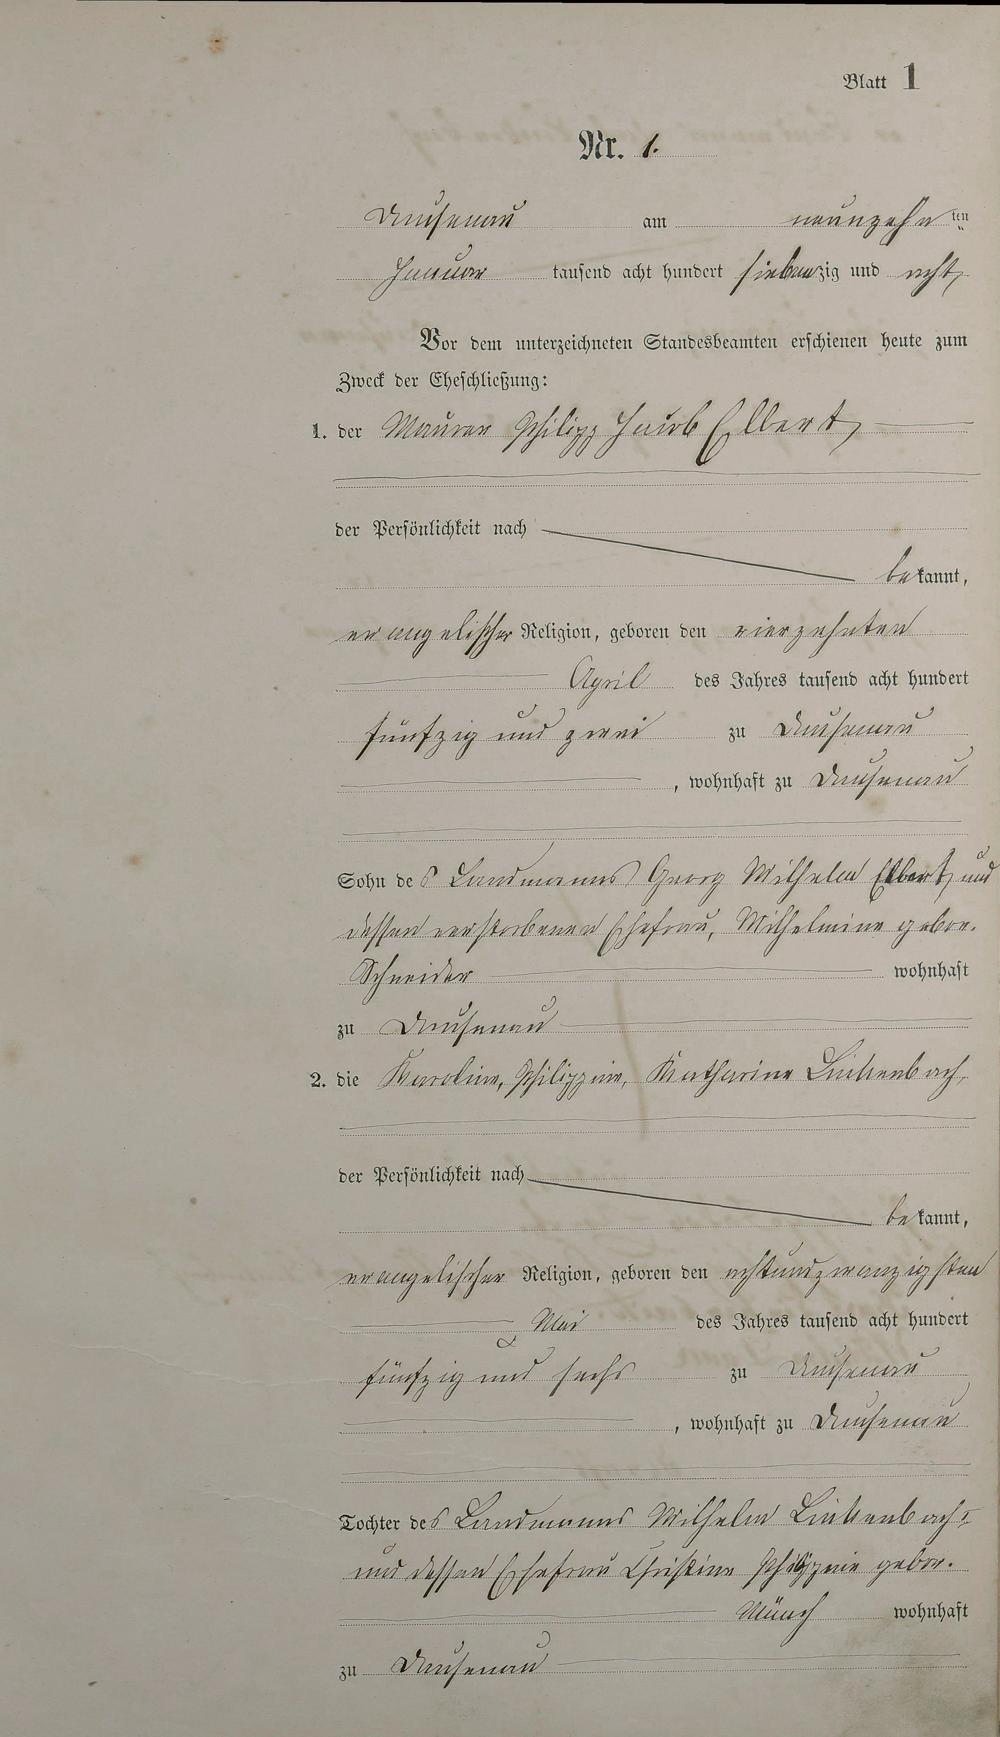 Blatt 1
Nr. 1.
Dausenau am neunzehnten
Januar tausend acht hundert siebenzig und acht
Vor dem unterzeichneten Standesbeamten erschienen heute zum
Zweck der Eheschließung:
1. der Maurer Philipp Jacob Elbert
der Persönlichkeit nach
bekannt,
evangelischer Religion, geboren den vierzehnten
April des Jahres tausend acht hundert
fünfzig und zwei zu Dausenau
, wohnhaft zu Dausenau
Sohn des Landmanns Georg Wilhelm Elbert und
dessen verstorbenen Ehefrau, Wilhelmine gebor.
Schneider wohnhaft
zu Dausenau
2. die Karoline, Philippine, Katharine Linkenbach
der Persönlichkeit nach
bekannt,
evangelischer Religion, geboren den achtundzwanzigsten
Mai des Jahres tausend acht hundert
fünfzig und sechs zu Dausenau
, wohnhaft zu Dausenau
Tochter des Landmanns Wilhelm Linkenbach
und dessen Ehefrau Christine Philippine gebor.
Münch wohnhaft
zu Dausenau